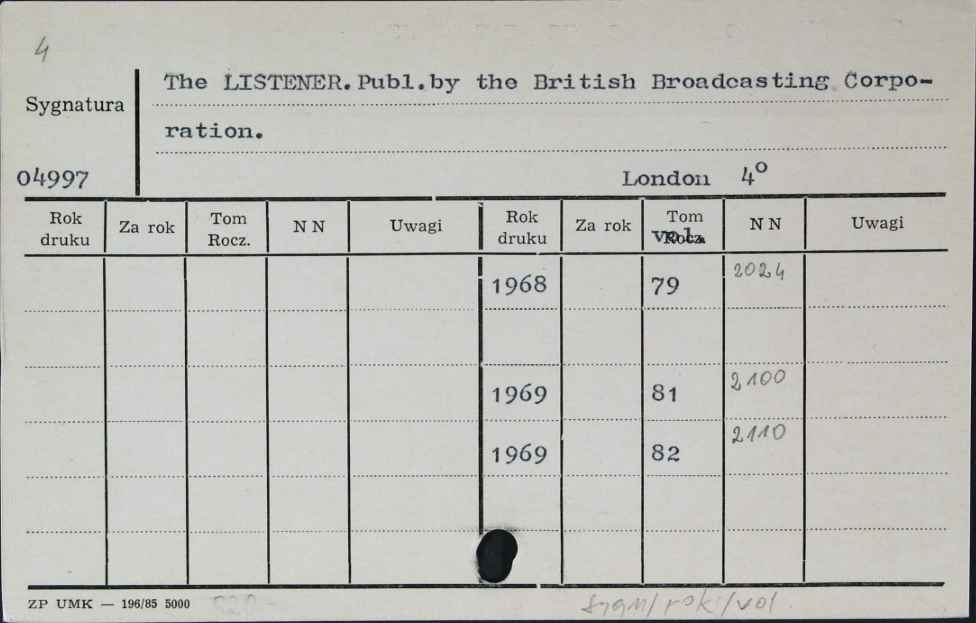 4
The LISTENER. Publ. by the British Broadcasting Corpo-
Sygnatura
ration.
04997
London 4º
Rok druku Za rok Tom Rocz. NN Uwagi Rok druku Za rok Tom vol. NN Uwagi
1968 79 2024
1969 81 2100
1969 82 2110
ZP UMK — 196/85 5000
sygn/rok/vol